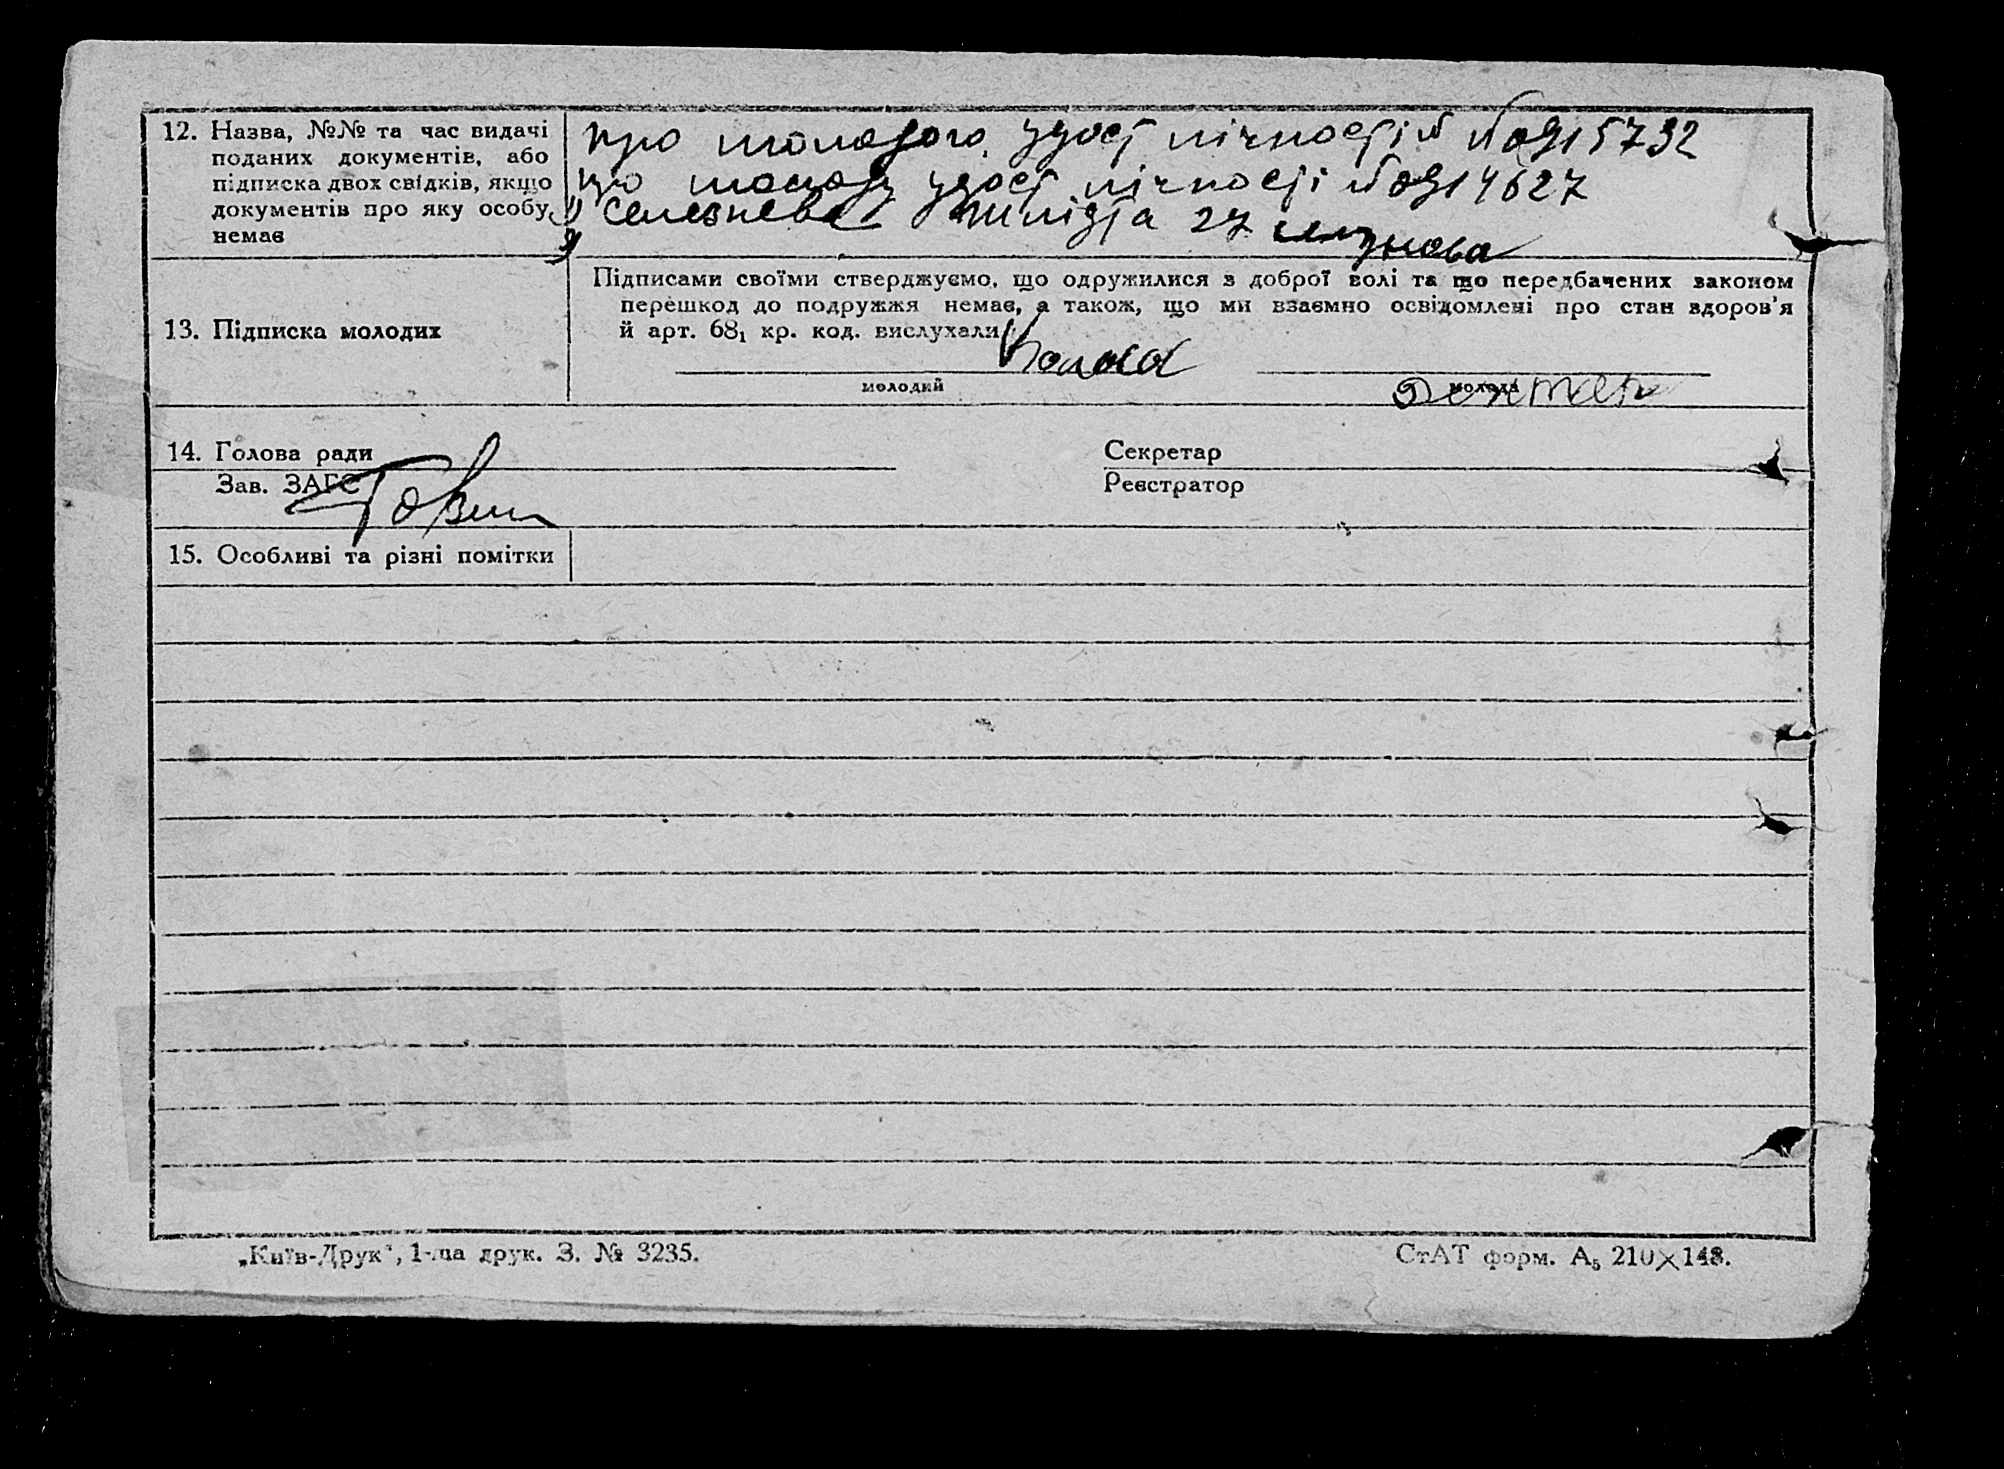 12. Назва, №№ та час видачі
поданих документів, або
підписка двох свідків, якщо
документів про яку особу
немає
про молодого удост лічности № 0915732
про молоду удост лічности № 0914627
27
13. Підписка молодих
Підписами своїми стверджуємо, що одружилися з доброї волі та що передбачених законом
перешкод до подружжя немає, а також, що ми взаємно освідомлені про стан здоров'я
й арт. 68₁ кр. код. вислухали
молодий молода
14. Голова ради Секретар
Зав. ЗАГС Реєстратор
15. Особливі та різні помітки
„Київ-Друк“, 1-ша друк. З. № 3235. СтАТ форм. А₅ 210×148.